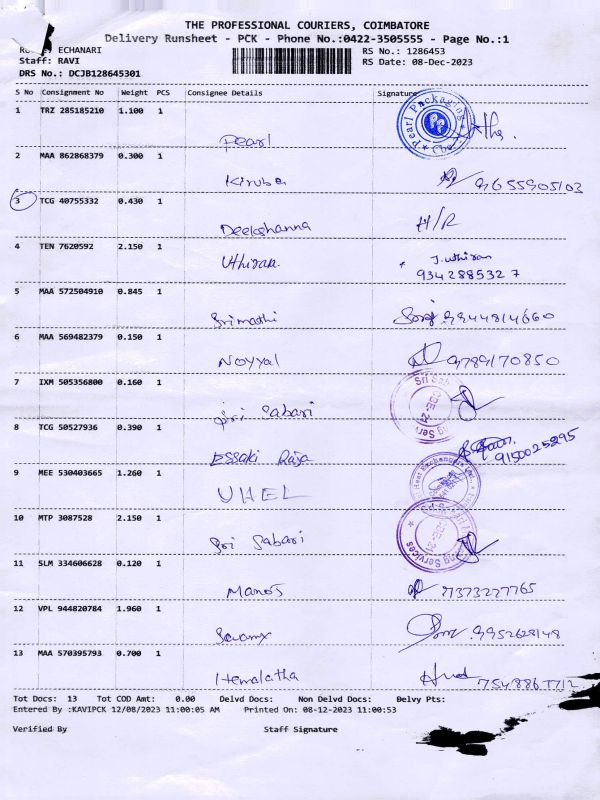 THE PROFESSIONAL COURIERS, COIMBATORE
Delivery Runsheet - PCK - Phone No.:0422-3505555 - Page No.:1
ECHANARI RS No.: 1286453
Staff: RAVI RS Date: 08-Dec-2023
DRS No.: DCJB128645301
S No Consignment No Weight PCS Consignee Details Signature
1 TRZ 285185210 1.100 1
Pearl Pearl Packaging
2 MAA 862868379 0.300 1
Kiruba 9655905103
3 TCG 40755332 0.430 1
Deekshanna H/R
4 TEN 7620592 2.150 1
Uthiran J. Uthiran
9342885327
5 MAA 572504910 0.845 1
Srimathi 9944814660
6 MAA 569482379 0.150 1
Noyyal 9789170850
7 IXM 505356800 0.160 1
Sri Sabari
8 TCG 50527936 0.390 1
Essaki Raja 9150025895
9 MEE 530403665 1.260 1
UHEL
10 MTP 3087528 2.150 1
Sri Sabari
11 SLM 334606628 0.120 1
Manoj 7373227765
12 VPL 944820784 1.960 1
9952628148
13 MAA 570395793 0.700 1
Hemalatha
Tot Docs: 13 Tot COD Amt: 0.00 Delvd Docs: Non Delvd Docs: Delvy Pts:
Entered By :KAVIPCK 12/08/2023 11:00:05 AM Printed On: 08-12-2023 11:00:53
Verified By Staff Signature